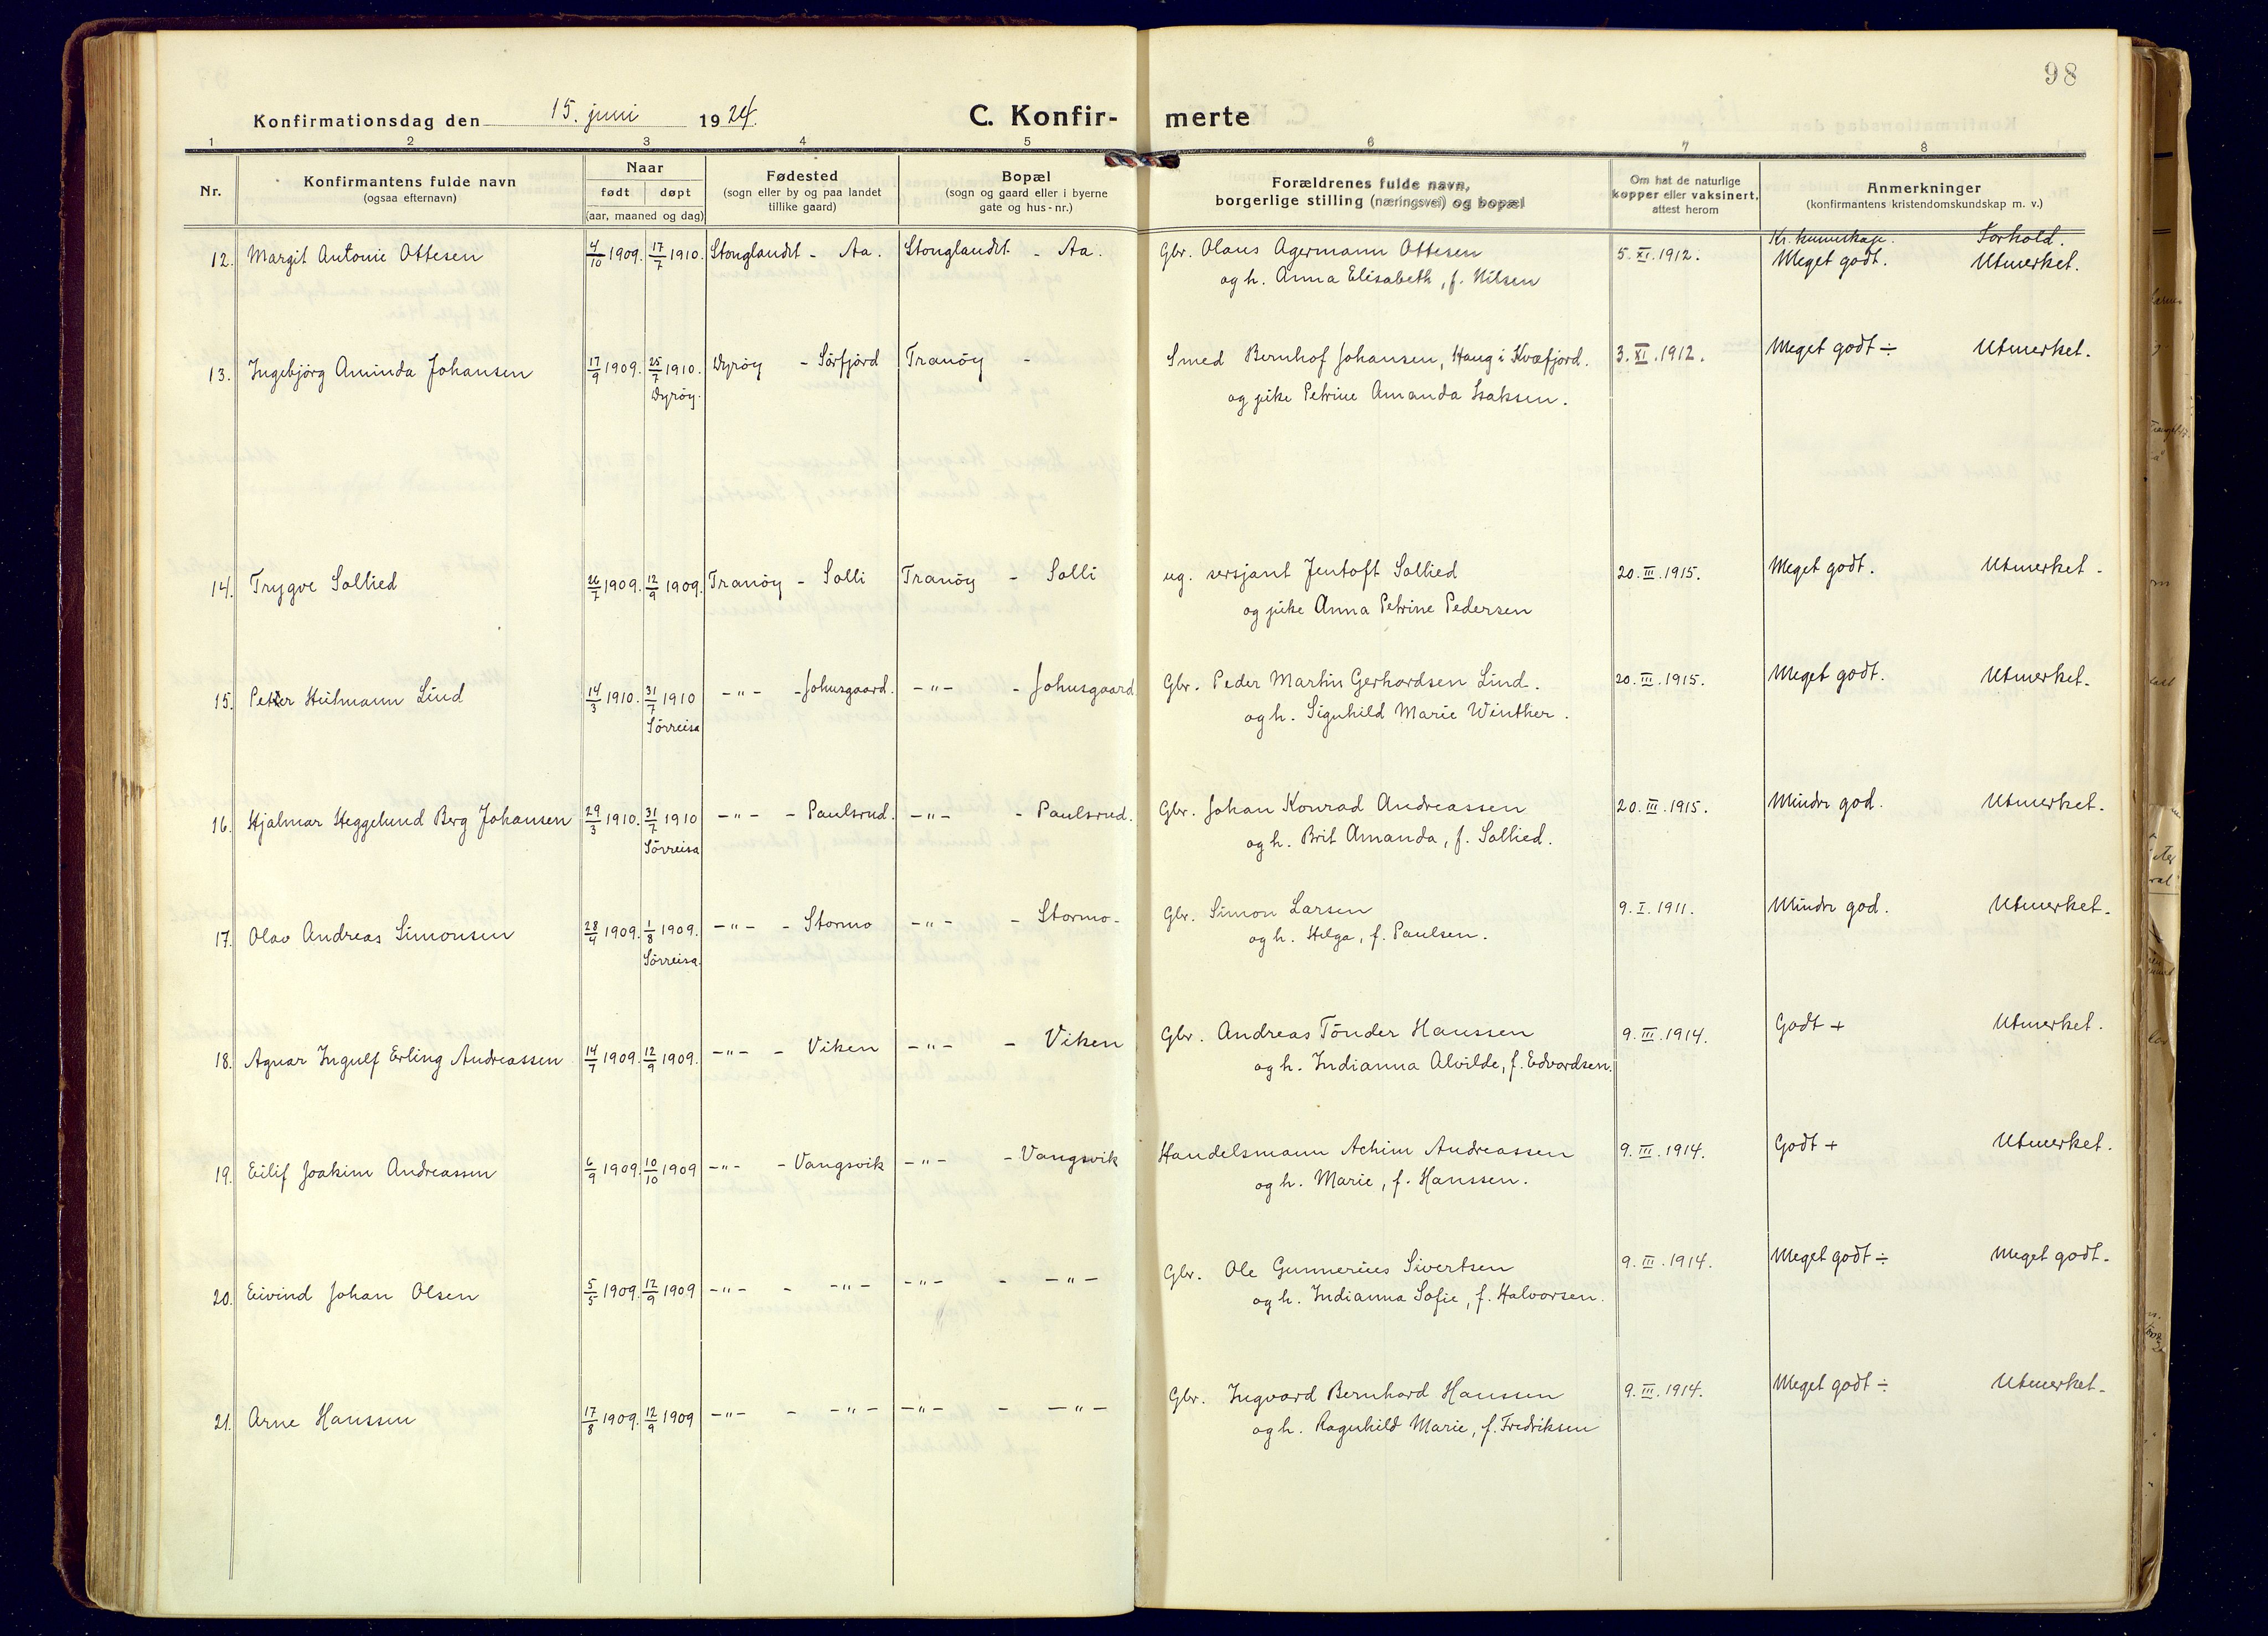 98
Konfirmationsdag den 15. juni 1924. C. Konfirmerte
1 2 3 4 5 6 7 8
Nr.
Konfirmantens fulde navn
(ogsaa efternavn)
Naar
født døpt
(aar, maaned og dag)
Fødested
(sogn eller by og paa landet
tillike gaard)
Bopæl
(sogn og gaard eller i byerne
gate og hus-nr.)
Forældrenes fulde navn,
borgerlige stilling (næringsvei) og bopæl
Om hat de naturlige
kopper eller vaksinert,
attest herom
Anmerkninger
(konfirmantens kristendomskundskap m. v.)
Kr. kunnskap. Forhold.
12. Margit Antonie Ottesen 4/10 1909. 17/7 1910. Stonglandet - Aa. Stonglandet - Aa. Gbr. Olaus Agermann Ottesen 5. XI. 1912. Meget godt. Utmerket.
og h. Anna Elisabeth, f. Nilsen
13. Ingebjörg Aminda Johansen 17/9 1909. 25/7 1910. Dyröy - Sörfjord Tranöy - Smed Bernhof Johansen, Haug i Kvæfjord. 3. XI. 1912. Meget godt ÷ Utmerket.
Dyröy. og pike Petrine Amanda Isaksen.
14. Trygve Sollied 26/7 1909. 12/9 1909. Tranöy - Solli Tranöy - Solli ug. sersjant Jentoft Sollied 20. III. 1915. Meget godt. Utmerket.
og pike Anna Petrine Pedersen
15. Petter Heitmann Lind 14/3 1910. 31/7 1910 -"- - Johnsgaard. -"- - Johnsgaard. Gbr. Peder Martin Gerhardsen Lind. 20. III. 1915. Meget godt. Utmerket.
Sörreisa og h. Signhild Marie Winther.
16. Hjalmar Heggelund Berg Johansen 29/3 1910. 31/7 1910 -"- - Paulsrud. -"- - Paulsrud. Gbr. Johan Konrad Andreassen 20. III. 1915. Mindre god. Utmerket.
Sörreisa og h. Brit Amanda, f. Sollied.
17. Olav Andreas Simonsen 28/4 1909. 1/8 1909. -"- - Stormo -"- - Stormo - Gbr. Simon Larsen 9. I. 1911. Mindre god. Utmerket.
Sörreisa. og h. Helga, f. Paulsen.
18. Agnar Ingulf Erling Andreassen 14/7 1909. 12/9 1909. -"- - Viken -"- - Viken Gbr. Andreas Tönder Hanssen 9. III. 1914. Godt + Utmerket.
og h. Indianna Alvilde, f. Edvardsen.
19. Eilif Joakim Andreassen 6/9 1909. 10/10 1909 -"- - Vangsvik -"- - Vangsvik Handelsmann Achim Andreassen 9. III. 1914. Godt + Utmerket.
og h. Marie, f. Hanssen.
20. Eivind Johan Olsen 5/5 1909. 12/9 1909 -"- - -"- -"- - -"- Gbr. Ole Gunnerius Sivertsen 9. III. 1914. Meget godt ÷ Meget godt.
og h. Indianna Sofie, f. Halvorsen.
21. Arne Hanssen 17/8 1909. 12/9 1909 -"- - -"- -"- - -"- Gbr. Ingvard Bernhard Hanssen 9. III. 1914. Meget godt ÷ Utmerket.
og h. Ragnhild Marie, f. Fredriksen